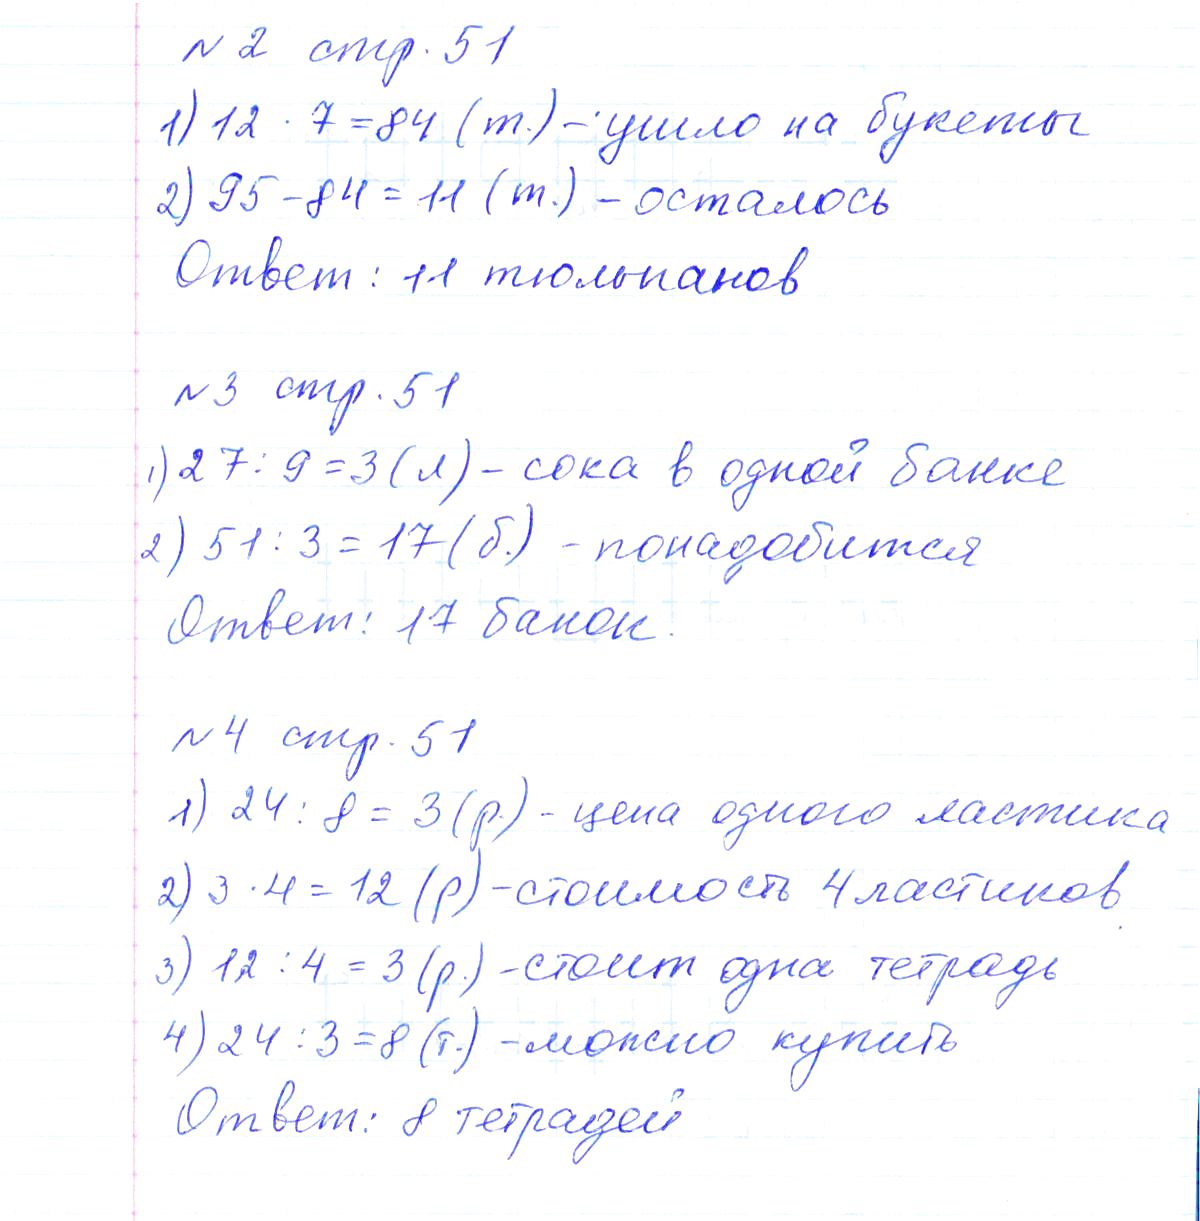 №2 стр. 51
1) 12 · 7 = 84 (т.) - ушло на букеты
2) 95 - 84 = 11 (т.) - осталось
Ответ: 11 тюльпанов
№3 стр. 51
1) 27 : 9 = 3 (л) - сока в одной банке
2) 51 : 3 = 17 (б.) - понадобится
Ответ: 17 банок.
№4 стр. 51
1) 24 : 8 = 3 (р.) - цена одного ластика
2) 3 · 4 = 12 (р) - стоимость 4 ластиков
3) 12 : 4 = 3 (р.) - стоит одна тетрадь
4) 24 : 3 = 8 (т.) - можно купить
Ответ: 8 тетрадей